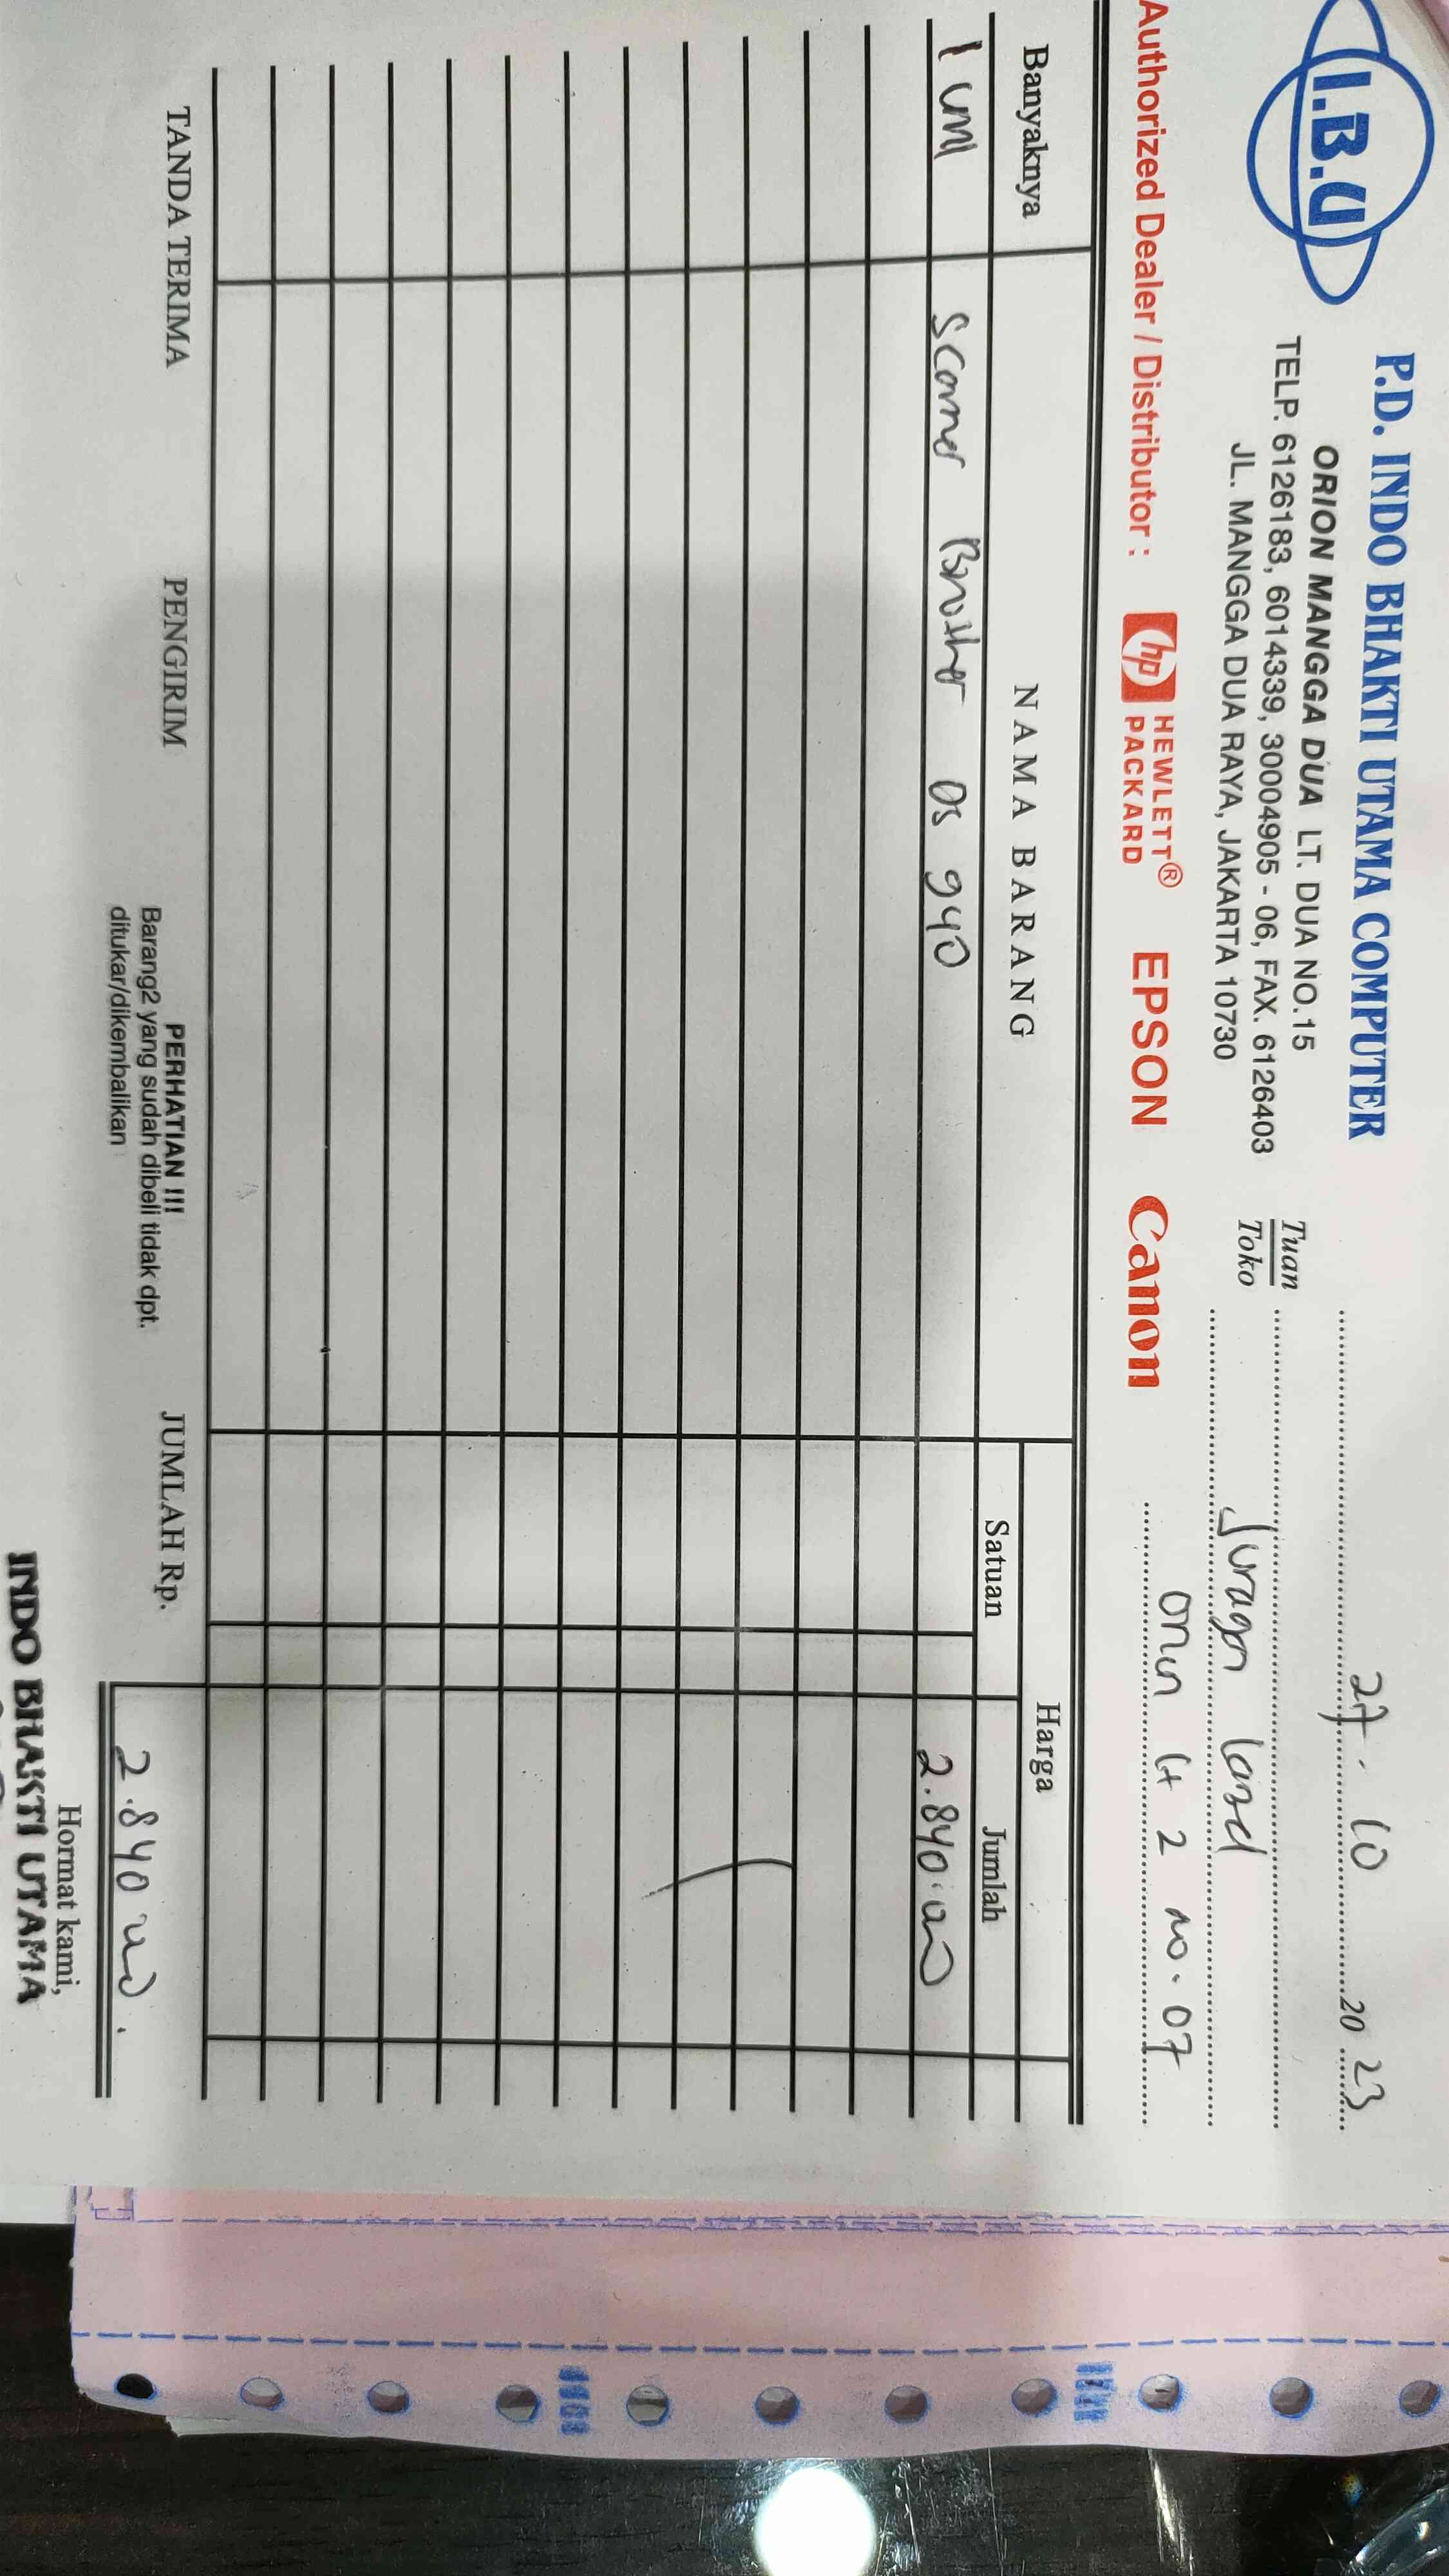 I.B.U
P.D. INDO BHAKTI UTAMA COMPUTER
ORION MANGGA DUA LT. DUA NO.15
TELP. 6126183, 6014339, 30004905 - 06, FAX. 6126403
JL. MANGGA DUA RAYA, JAKARTA 10730
27 . 10 20 23
Tuan
Toko
Juragan
lt 2 no. 07
Authorized Dealer / Distributor : hp HEWLETT® PACKARD EPSON Canon
Banyaknya NAMA BARANG Harga
Satuan Jumlah
1 Scanner Brother DS 940 2.840.
TANDA TERIMA PENGIRIM PERHATIAN !!! JUMLAH Rp. 2.840
Barang2 yang sudah dibeli tidak dpt.
ditukar/dikembalikan
Hormat kami,
INDO BHAKTI UTAMA